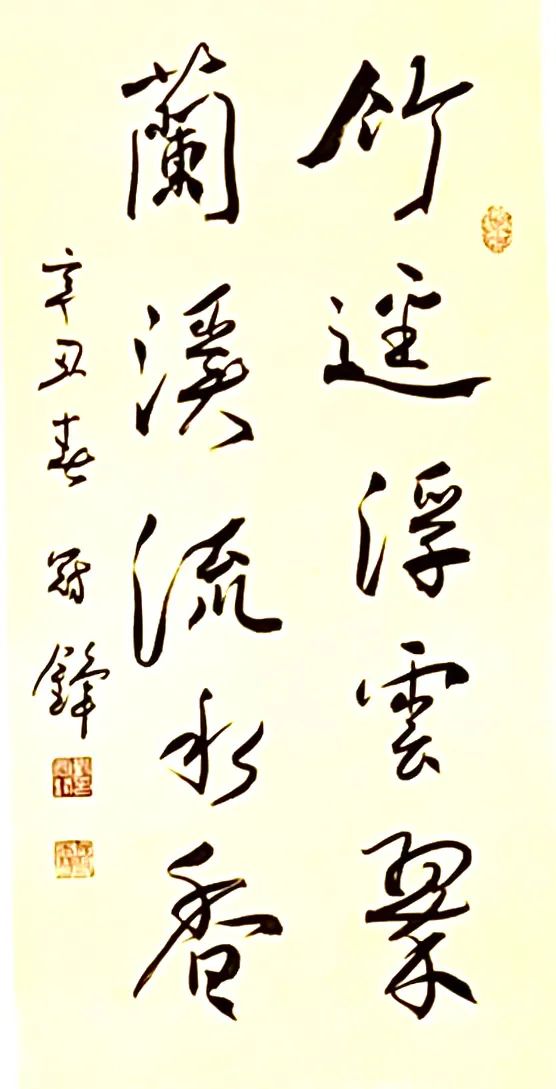 竹逕浮雲翠
蘭溪流水香
辛丑春 冠鋒